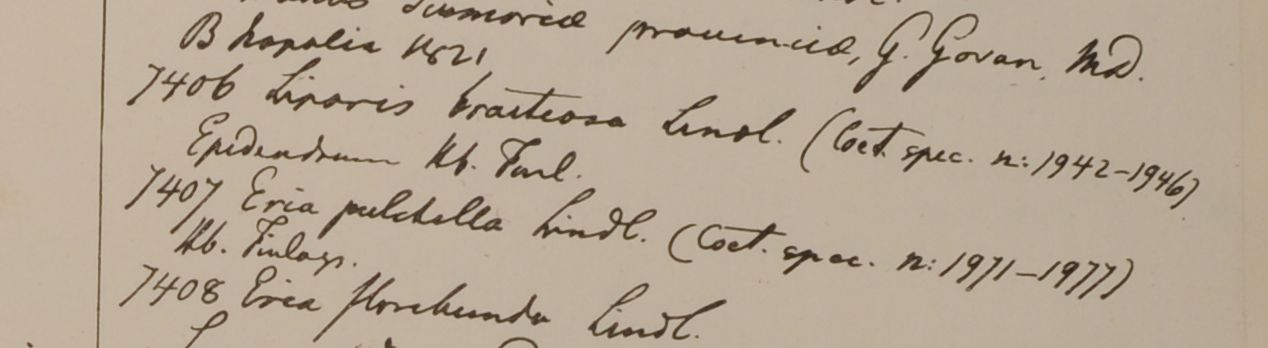 Sirmoriæ provinciæ, G. Govan, MD.
B Napalia 1821
7406 Liparis bracteosa Lindl. (Coet. spec. n: 1942-1946)
Epidendrum Hb. Finl.
7407 Eria pulchella Lindl. (Coet. spec. n: 1971-1977)
Hb. Finlays.
7408 Eria floribunda Lindl.